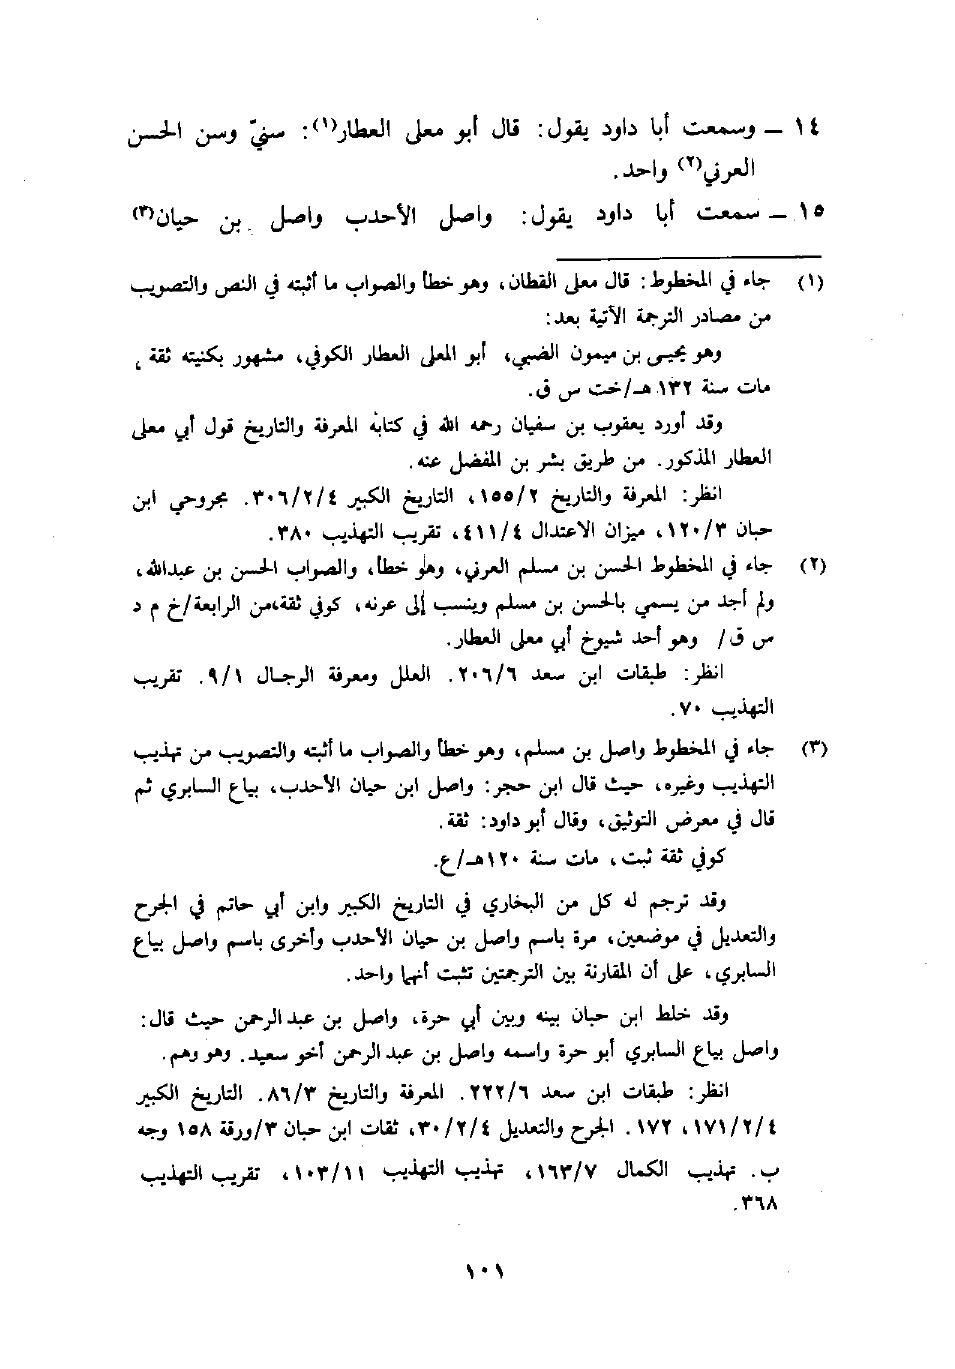 ١٤ ــ وسمعت أبا داود يقول: قال أبو معلى العطار(١): سنيّ وسن الحسن
العرني(٢) واحد.
١٥ ــ سمعت أبا داود يقول: واصل الأحدب واصل بن حيان(٣)
(١) جاء في المخطوط: قال معلى القطان، وهو خطأ والصواب ما أثبته في النص والتصويب
من مصادر الترجمة الآتية بعد:
وهو يحيى بن ميمون الضبي، أبو المعلى العطار الكوفي، مشهور بكنيته ثقة،
مات سنة ١٣٢هـ/خت س ق.
وقد أورد يعقوب بن سفيان رحمه الله في كتابه المعرفة والتاريخ قول أبي معلى
العطار المذكور. من طريق بشر بن المفضل عنه.
انظر: المعرفة والتاريخ ١٥٥/٢، التاريخ الكبير ٣٠٦/٢/٤. مجروحي ابن
حبان ١٢٠/٣، ميزان الاعتدال ٤١١/٤، تقريب التهذيب ٣٨٠.
(٢) جاء في المخطوط الحسن بن مسلم العرني، وهو خطأ، والصواب الحسن بن عبدالله،
ولم أجد من يسمي بالحسن بن مسلم وينسب إلى عرنه، كوفي ثقة،من الرابعة/خ م د
س ق/ وهو أحد شيوخ أبي معلى العطار.
انظر: طبقات ابن سعد ٢٠٦/٦. العلل ومعرفة الرجال ٩/١. تقريب
التهذيب ٧٠.
(٣) جاء في المخطوط واصل بن مسلم، وهو خطأ والصواب ما أثبته والتصويب من تهذيب
التهذيب وغيره، حيث قال ابن حجر: واصل ابن حيان الأحدب، بياع السابري ثم
قال في معرض التوثيق، وقال أبو داود: ثقة.
كوفي ثقة ثبت، مات سنة ١٢٠هـ/ع.
وقد ترجم له كل من البخاري في التاريخ الكبير وابن أبي حاتم في الجرح
والتعديل في موضعين، مرة باسم واصل بن حيان الأحدب وأخرى باسم واصل بياع
السابري، على أن المقارنة بين الترجمتين تثبت أنهما واحد.
وقد خلط ابن حبان بينه وبين أبي حرة، واصل بن عبد الرحمن حيث قال:
واصل بياع السابري أبو حرة واسمه واصل بن عبد الرحمن أخو سعيد. وهو وهم.
انظر: طبقات ابن سعد ٢٢٢/٦. المعرفة والتاريخ ٨٦/٣. التاريخ الكبير
١٧١/٢/٤، ١٧٢. الجرح والتعديل ٣٠/٢/٤، ثقات ابن حبان ٣/ورقة ١٥٨ وجه
ب. تهذيب الكمال ١٦٣/٧، تهذيب التهذيب ١٠٣/١١، تقريب التهذيب
٣٦٨.
١٠١